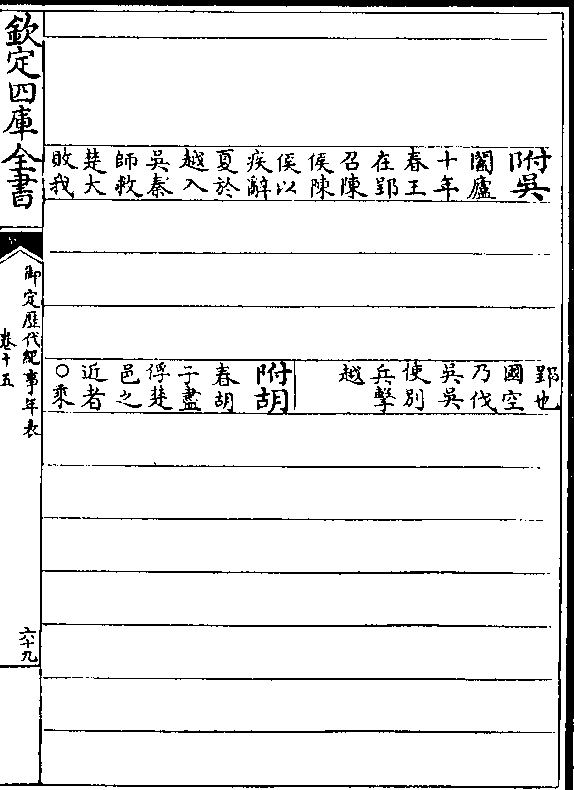 附吳
闔廬
十年
春王
在郢
召陳
侯陳
侯以
疾辭
夏於
越入
吳秦
師救
楚大
敗我
郢也
國空
乃伐
吳吳
使別
兵擊
越
附胡
春胡
子盡
俘楚
邑之
近者
○乘
欽定四庫全書
御定歷代紀事年表
卷十五
六十九